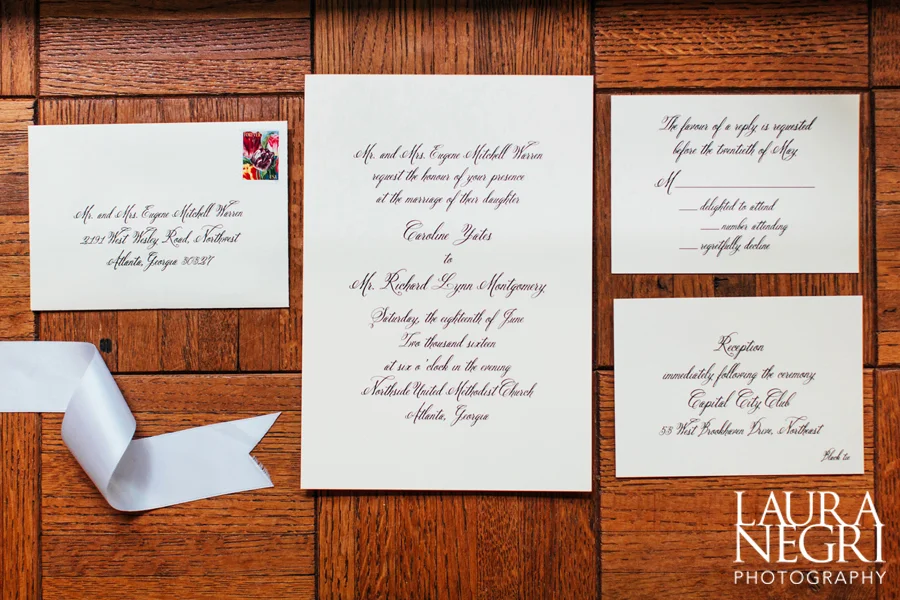 FOREVER
USA
Mr. and Mrs. Eugene Mitchell Warren
2191 West Wesley Road, Northwest
Atlanta, Georgia 30327
Mr. and Mrs. Eugene Mitchell Warren
request the honour of your presence
at the marriage of their daughter
Caroline Yates
to
Mr. Richard Lynn Montgomery
Saturday, the eighteenth of June
Two thousand sixteen
at six o'clock in the evening
Northside United Methodist Church
Atlanta, Georgia
The favour of a reply is requested
before the twentieth of May
M
delighted to attend
number attending
regretfully decline
Reception
immediately following the ceremony
Capital City Club
53 West Brookhaven Drive, Northeast
Black tie
LAURA
NEGRI
PHOTOGRAPHY